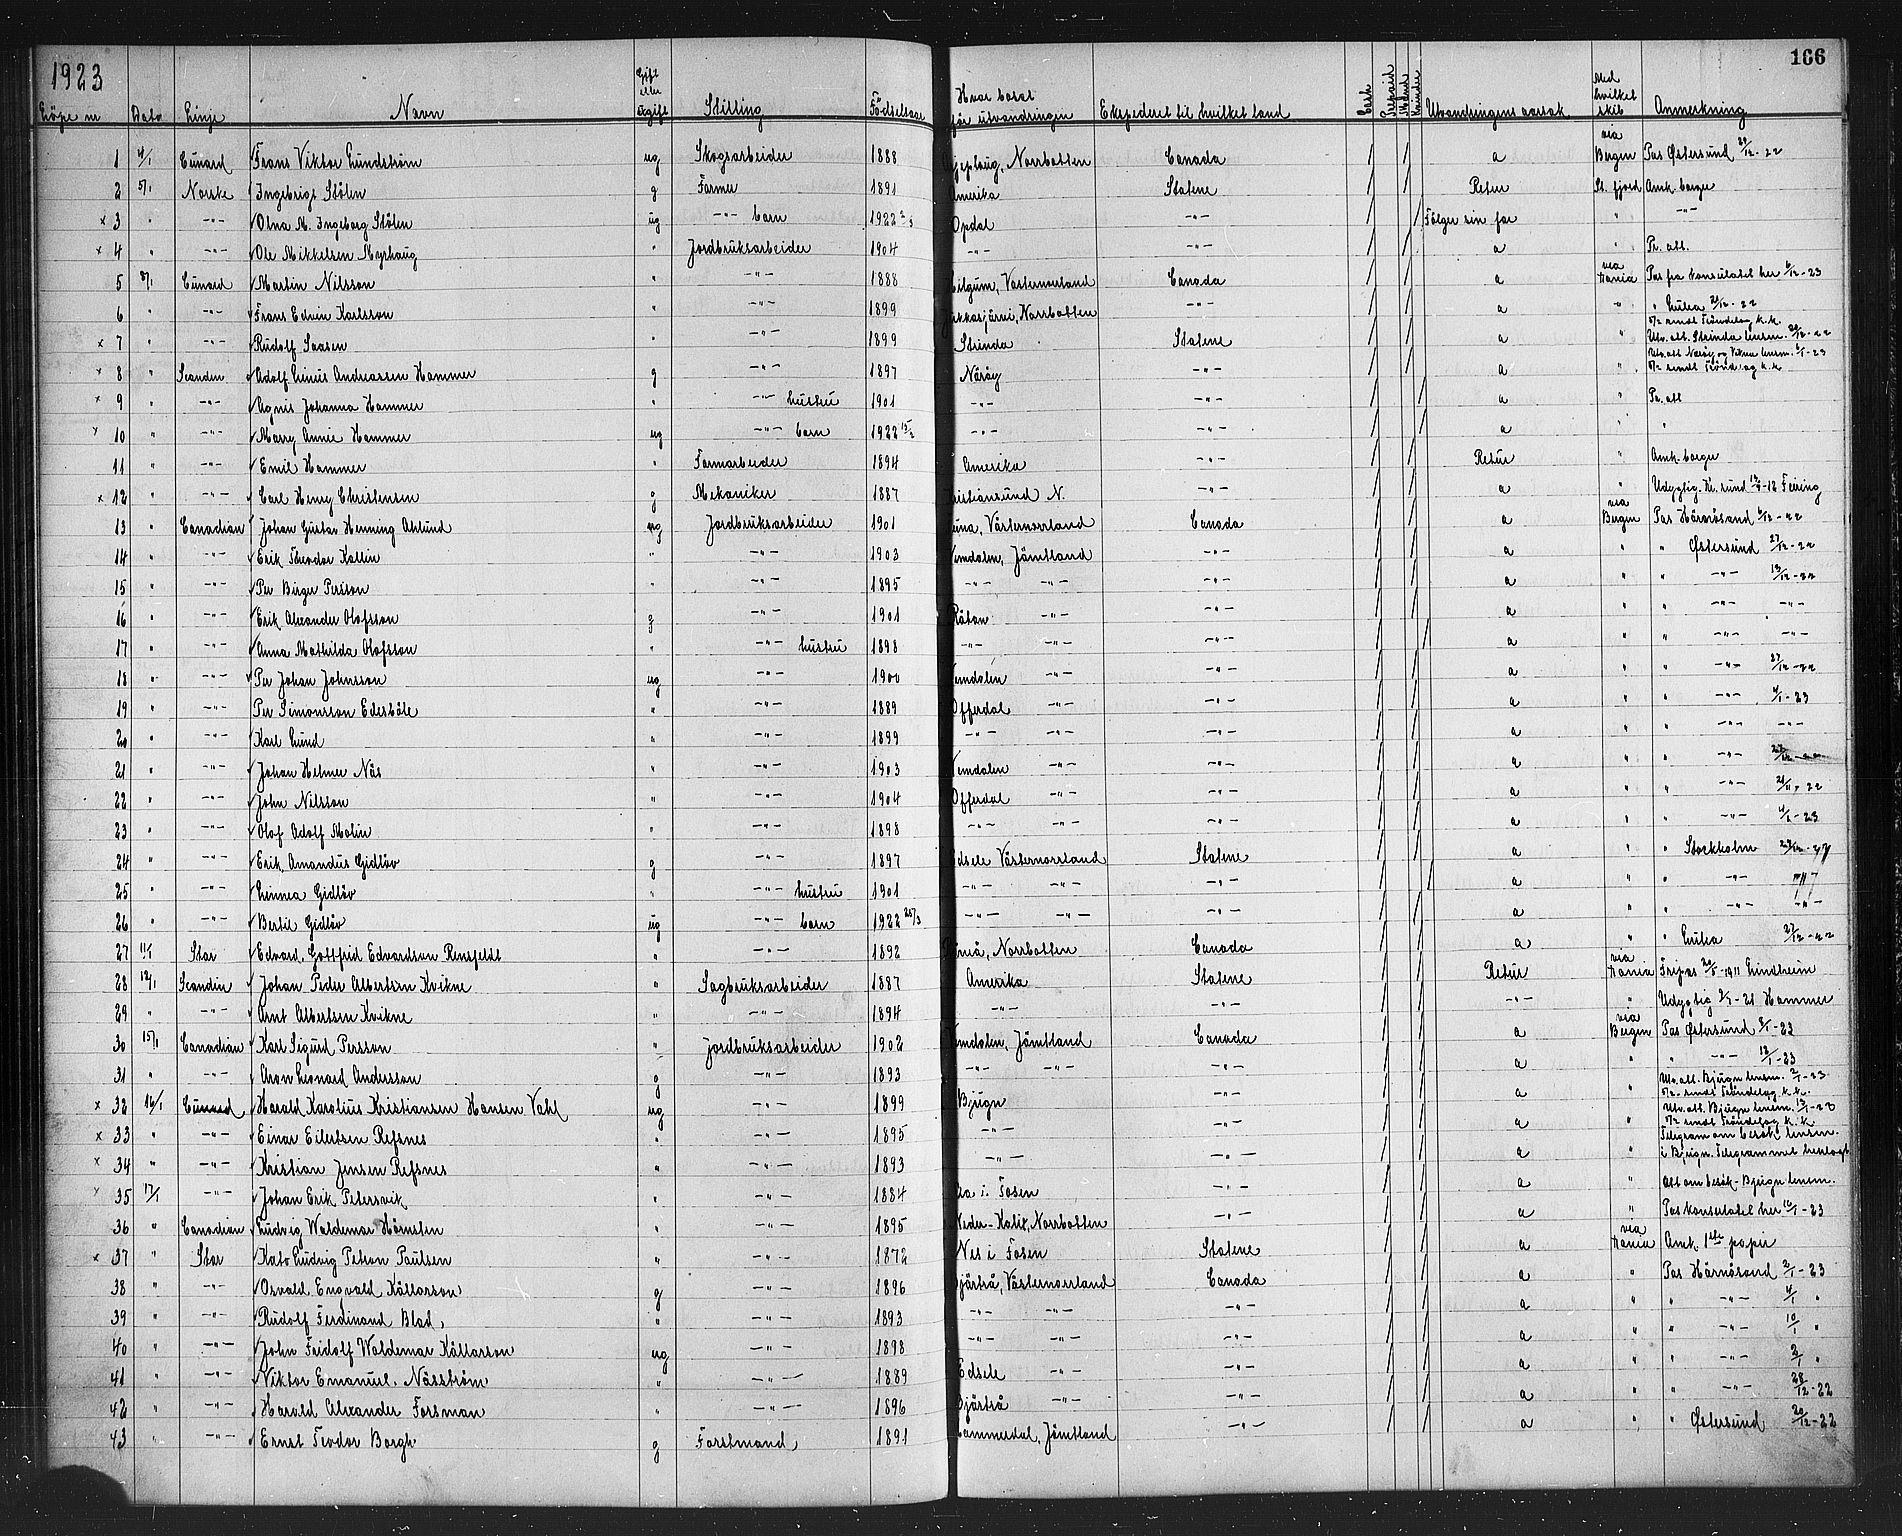 1923
166
Löpe nr Dato Linje Navn Gift eller ugift Stilling Födselsaar Hvor bosat för utvandringen Ekspederet til hvilket land Cash Prepaid Mænd Kvinder Utvandringens aarsak Med hvilket skib Anmerkning
1 4/1 Cunard Frans Viktor Lundström ug Skogsarbeider 1888 jeploug, Norrbotten Canada a via Bergen Pas Østersund 29/12-22
2 5/1 Norske Ingebrigt Stölen g Farmer 1891 Amerika Statene Retur St. fjord Amk. borger
x 3 " -"- Olna M. Ingeborg Stölen ug -"- barn 1922 Opdal -"- Fölger sin far " -"-
x 4 " -"- Ole Mikkelsen Myrhaug " Jordbruksarbeider 1904 -"- -"- a " Pr. att.
5 8/1 Cunard Martin Nilsson " -"- 1888 ilgum, Vesternorrland Canada a via Dania Pas fra konsulatet her 6/12-23
6 " -"- Frans Edvin Karlsson " -"- 1899 ukkasjärvi, Norrbotten a " " Luleå 21/12-22
x 7 " -"- Rudolf Saasen " -"- 1899 Strinda Statene a " 5/2 sendt Tröndelag k.k. Utv. att. Strinda lensm. 29/12-22
x 8 " Scandin Adolf Linus Andreassen Hammer g -"- 1897 Näröy -"- a " Utv. att Näröy og Vikna lensm. 2/1-23 5/2 sendt Trönd.ag k.k
x 9 " -"- Agnis Johanna Hammer " -"- hustru 1901 -"- -"- a " Pr. att
x 10 " -"- Marry Annie Hammer ug -"- barn 1922 -"- -"- a " "
11 " -"- Emil Hammer " Farmarbeider 1894 Amerika -"- Retur " Amk. borger
x 12 " -"- Carl Henry Christensen g Mekaniker 1887 istiansund N. -"- a " Udygtig. Kr. sund 19/9-12 Feiring
13 " Canadian Johan Gustav Henning Ahlund ug Jordbruksarbeider 1901 una, Västernorrland Canada a via Bergen Pas Härnösand 6/12-22
14 " -"- Erik Theodor Kallin " -"- 1903 emdalen, Jämtland -"- a " " Østersund 27/12-22
15 " -"- Per Birger Persson " -"- 1895 -"- -"- -"- a " " -"- 13/12-22
16 " -"- Erik Alexander Olofsson g -"- 1901 Råtan -"- -"- a " " -"- -"-
17 " -"- Anna Mathilda Olofsson " -"- hustru 1898 -"- -"- a " " -"- -"-
18 " -"- Per Johan Johnsson ug -"- 1900 emdalen -"- -"- a " " -"- 27/12-22
19 " -"- Per Simonsson Ederböle " -"- 1889 Offerdal -"- -"- a " " -"- 4/1-23
20 " -"- Karl Lund " -"- 1899 -"- -"- -"- a " " -"- -"-
21 " -"- Johan Helmer Näs " -"- 1903 emdalen -"- -"- a " " -"-
22 " -"- John Nilsson " -"- 1904 Offerdal -"- -"- a " " -"- 21/11-22
23 " -"- Olof Adolf Molin " -"- 1898 -"- -"- -"- a " " -"- 4/1-23
24 " -"- Erik Amandus Gidlöv g -"- 1897 dsele Västernorrland Statene a " " Stockholm
25 " -"- Linnea Gidlöv " -"- hustru 1901 -"- -"- -"- a " " -"-
26 " -"- Bertil Gidlöv ug -"- barn 1922 25/3 -"- -"- -"- a " " -"- -"-
27 11/1 Star Edvard Gottfrid Edvardson Rensfeldt " -"- 1892 Norrbotten Canada a " " Luleå 27/12-22
28 12/1 Scandin Johan Peder Albertsen Kvikne " Sagbruksarbeider 1887 Amerika Statene Retur via Dania Fripas 20/5-1911 Lindheim
29 " " Arnt Albertsen Kvikne " -"- 1894 -"- -"- " Udygtig 2/1-21 Hammer
30 15/1 Canadian Karl Sigurd Persson " Jordbruksarbeider 1902 emdalen, Jämtland Canada a via Bergen Pas Østersund 8/1-23
31 " -"- Aron Leonard Andersson g -"- 1893 -"- -"- -"- a " " -"- 12/1-23
x 32 16/1 Cunard Harald Karolius Kristiansen Hansen Vahl ug -"- 1899 Bjugn -"- a " Utv. att. Bjugn lensm. 2/1-23 5/2 sendt Tröndelag k.k.
x 33 " -"- Einar Eilertsen Refsnes " -"- 1895 -"- a " Utv. att. Bjugn lensm. 13/1-23 5/2 sendt Tröndelag k.k.
x 34 " -"- Kristian Jensen Refsnes " -"- 1893 -"- a " Telegram om besök lensm. i Bjugn. Telegrammet
x 35 17/1 -"- Johan Erik Petersvik " -"- 1884 i Fosen a " att om besök - Bjugn lensm.
36 " Canadian Ludvig Waldemar Hörnsten " -"- 1895 Neder-Kalix, Norrbotten a " Pas konsulatet her 16/1-23
x 37 " Star Kato Ludvig Petron Paulsen " -"- 1872 Nes i Fosen Statene a via Dania Amk. 1ste papir
38 " -"- Osvald Engvald Källarson g -"- 1896 järtrå, Västernorrland Canada a " Pas Härnösand 2/1-23
39 " -"- Rudolf Ferdinand Blad, " -"- 1893 -"- -"- -"- a " " -"- 4/1 "
40 " -"- John Fridolf Waldemar Källarson ug -"- 1898 -"- -"- -"- a " " -"- 10/1 "
41 " -"- Viktor Emanuel Näsström " -"- 1889 Edsele -"- a " " -"- 2/1 "
42 " -"- Harald Alexander Forsman " -"- 1896 Bjärtrå -"- a " " -"- 28/12-22
43 " -"- Ernst Teodor Borgh g Forstmand, 1891 ammerdal, Jämtland -"- a " " Østersund 20/12-22